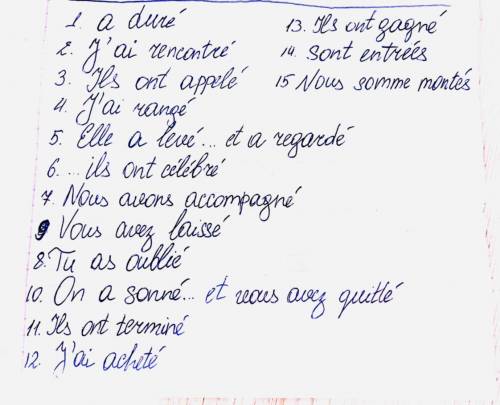 1. a duré
2. J'ai rencontré
3. Ils ont appelé
4. J'ai rangé
5. Elle a levé... et a regardé
6. ... ils ont célébré
7. Nous avons accompagné
9 Vous avez laissé
8. Tu as oublié
10. On a sonné... et vous avez quitté
11. Ils ont terminé
12. J'ai acheté
13. Ils ont gagné
14. sont entrées
15 Nous somme montés